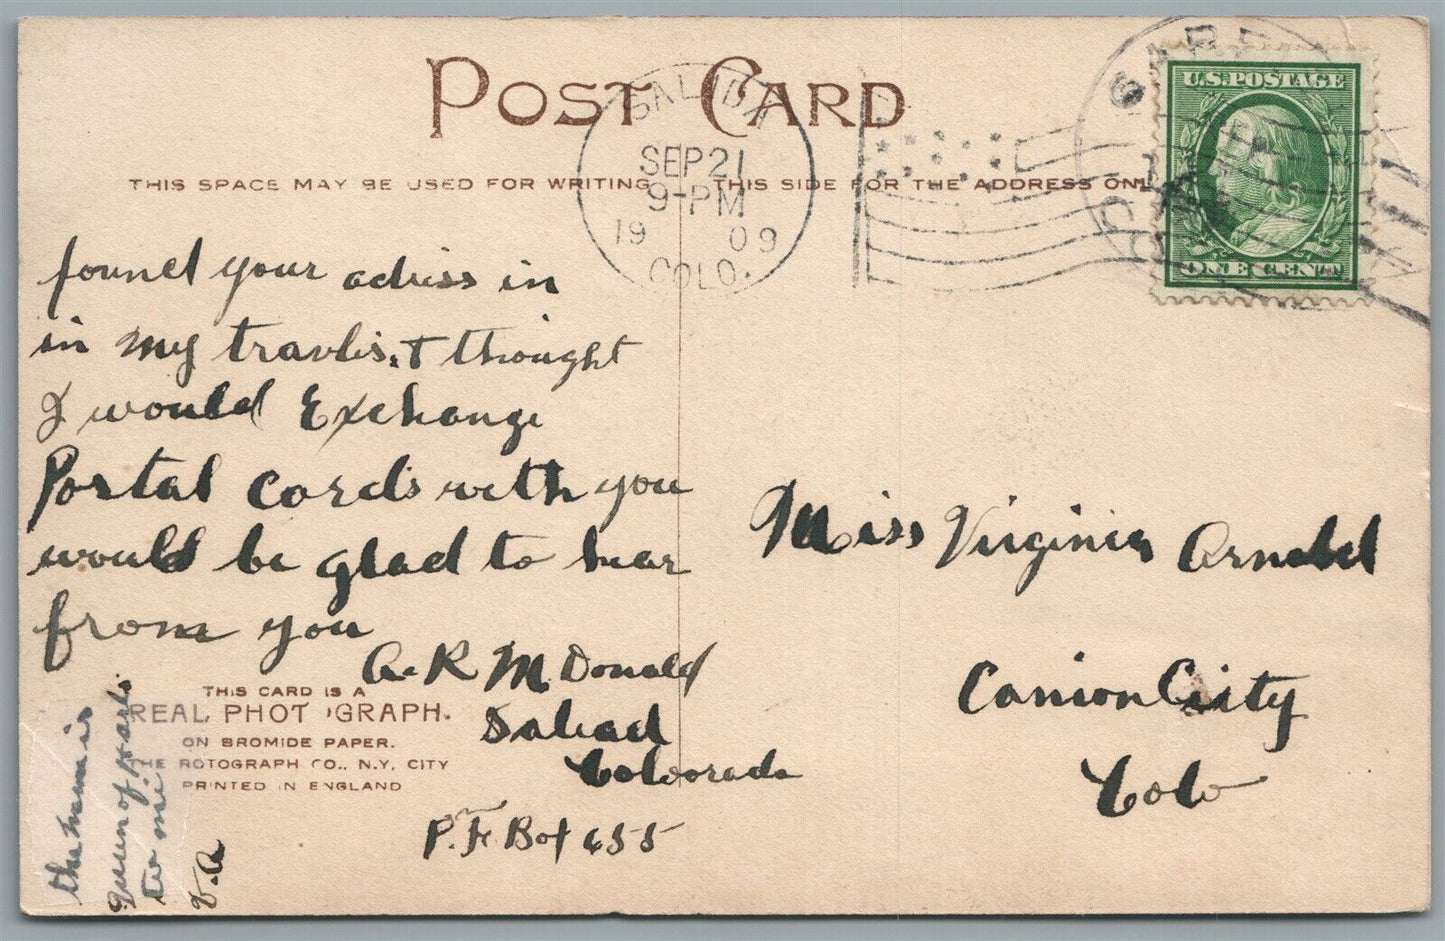 POST CARD
THIS SPACE MAY BE USED FOR WRITING
THIS SIDE FOR THE ADDRESS ONL
SALIDA
SEP 21
9-PM
1909
COLO.
U.S. POSTAGE
ONE CENT
found your adress in
in my travles. & thought
I would Exchange
Portal Cards with you
would be glad to hear
from you
A. R McDonald
Salead
Coloorado
P. F. Box 655
Miss Virginia Arnold
Canion Ciity
Colo
THIS CARD IS A
REAL PHOTOGRAPH.
ON BROMIDE PAPER.
THE ROTOGRAPH CO., N.Y. CITY
PRINTED IN ENGLAND
the mem is
queen of Harts
to mi
V. A